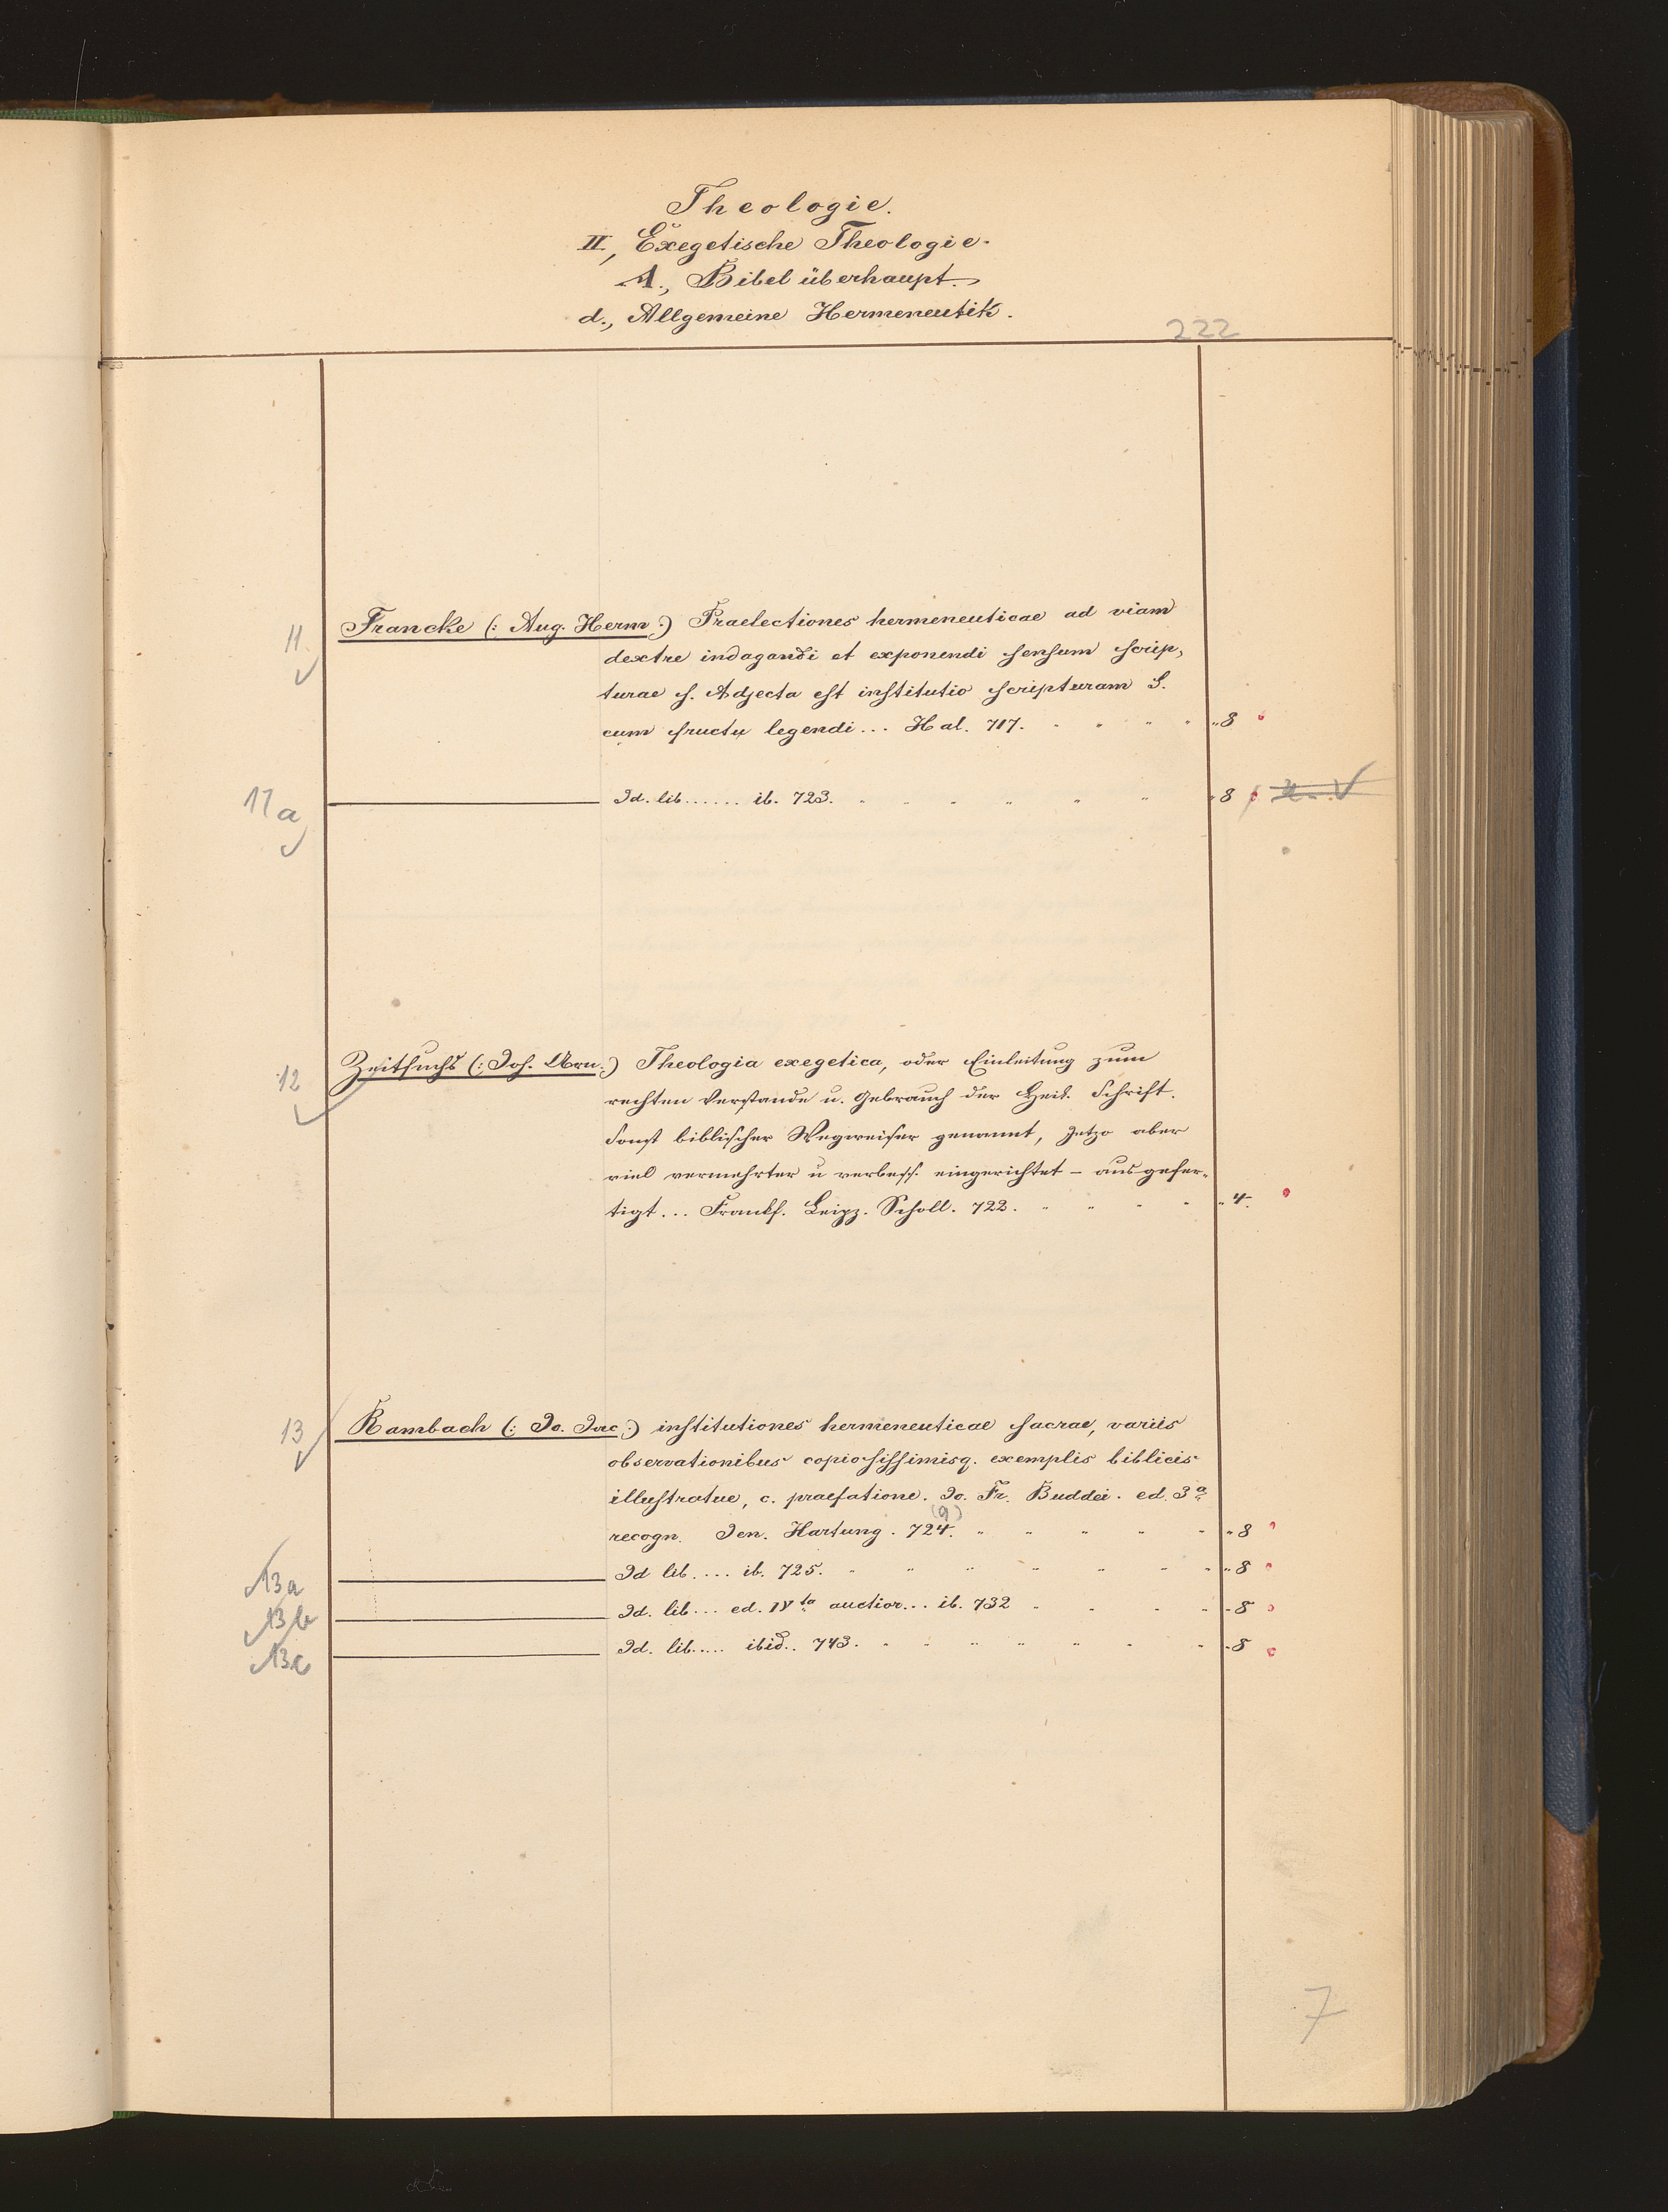 Theologie.
II., Exegetische Theologie.
A., Bibel überhaupt.
d., Allgemeine Hermeneutik.
222
11. Francke (: Aug. Herm :) Praelectiones hermeneuticae ad viam
dextre indagandi et exponendi sensum scrip,
turae s. Adjecta est institutio scripturam S.
cum fructu legendi... Hal. 717. " " " " "8
11a Id. lib...... ib. 723. " " " " " " "8
12 Zeitfuchs (: Joh. Arn :) Theologia exegetica, oder Einleitung zum
rechten Verstande u. Gebrauch der Heil. Schrift.
Sonst biblischer Wegweiser genannt, Jetzo aber
viel vermehrter u verbess. eingerichtet – ausgefer-
tigt... Frankf. Leipz. Scholl. 722. " " " " "4.
13 Rambach (: Jo. Jac :) institutiones hermeneuticae sacrae, variis
observationibus copiosissimisq. exemplis biblicis
illustratae, c. praefatione. Jo. Fr. Buddei. ed. 3a
(9)
recogn. Jen. Hartung. 724. " " " " " "8
13a Id lib.... ib. 725. " " " " " " " "8
13b Id. lib... ed. IVta auctior... ib. 732 " " " " "8
13c Id. lib..... ibid.. 743. " " " " " " " "8
7